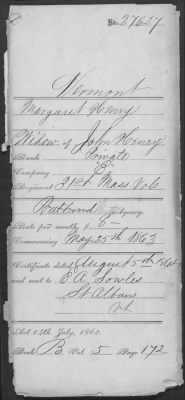 No. 27627
Vermont
Margaret Henry
Widow of John Henry
Rank Private
Company E
Regiment 21st Mass Vols
Rutland Agency
Rate per month, 8
Commencing May 25th 1863
Certificate dated August 5th 1864
and sent to E A Sowles
St Albans
Vt
Act 14th July, 1862.
Book B Vol. 5 Page 172